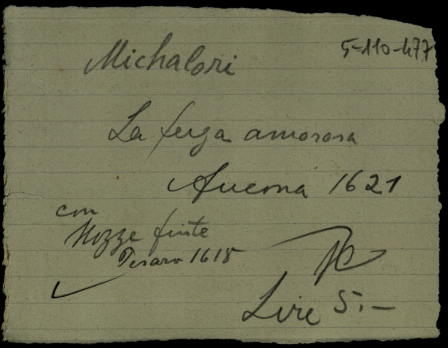 5-110-477
Michalori
La fuga amorosa
Ancona 1621
con
Nozze finte
Pesaro 1618
Lire 5.-